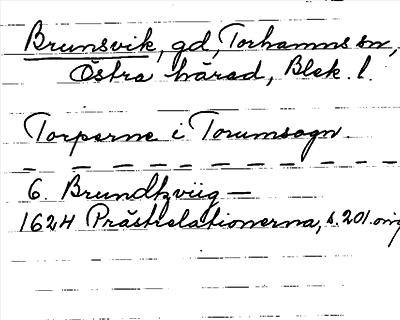 Brunsvik, gd, Torhamns sn,
Östra härad, Blek. l.
Torperne i Torumsogn.
6. Brundtzviig —
1624 Prästrelationerna, s. 201. orig